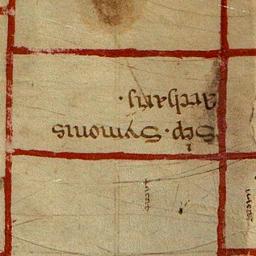 Sep. Symonis
Archarij.